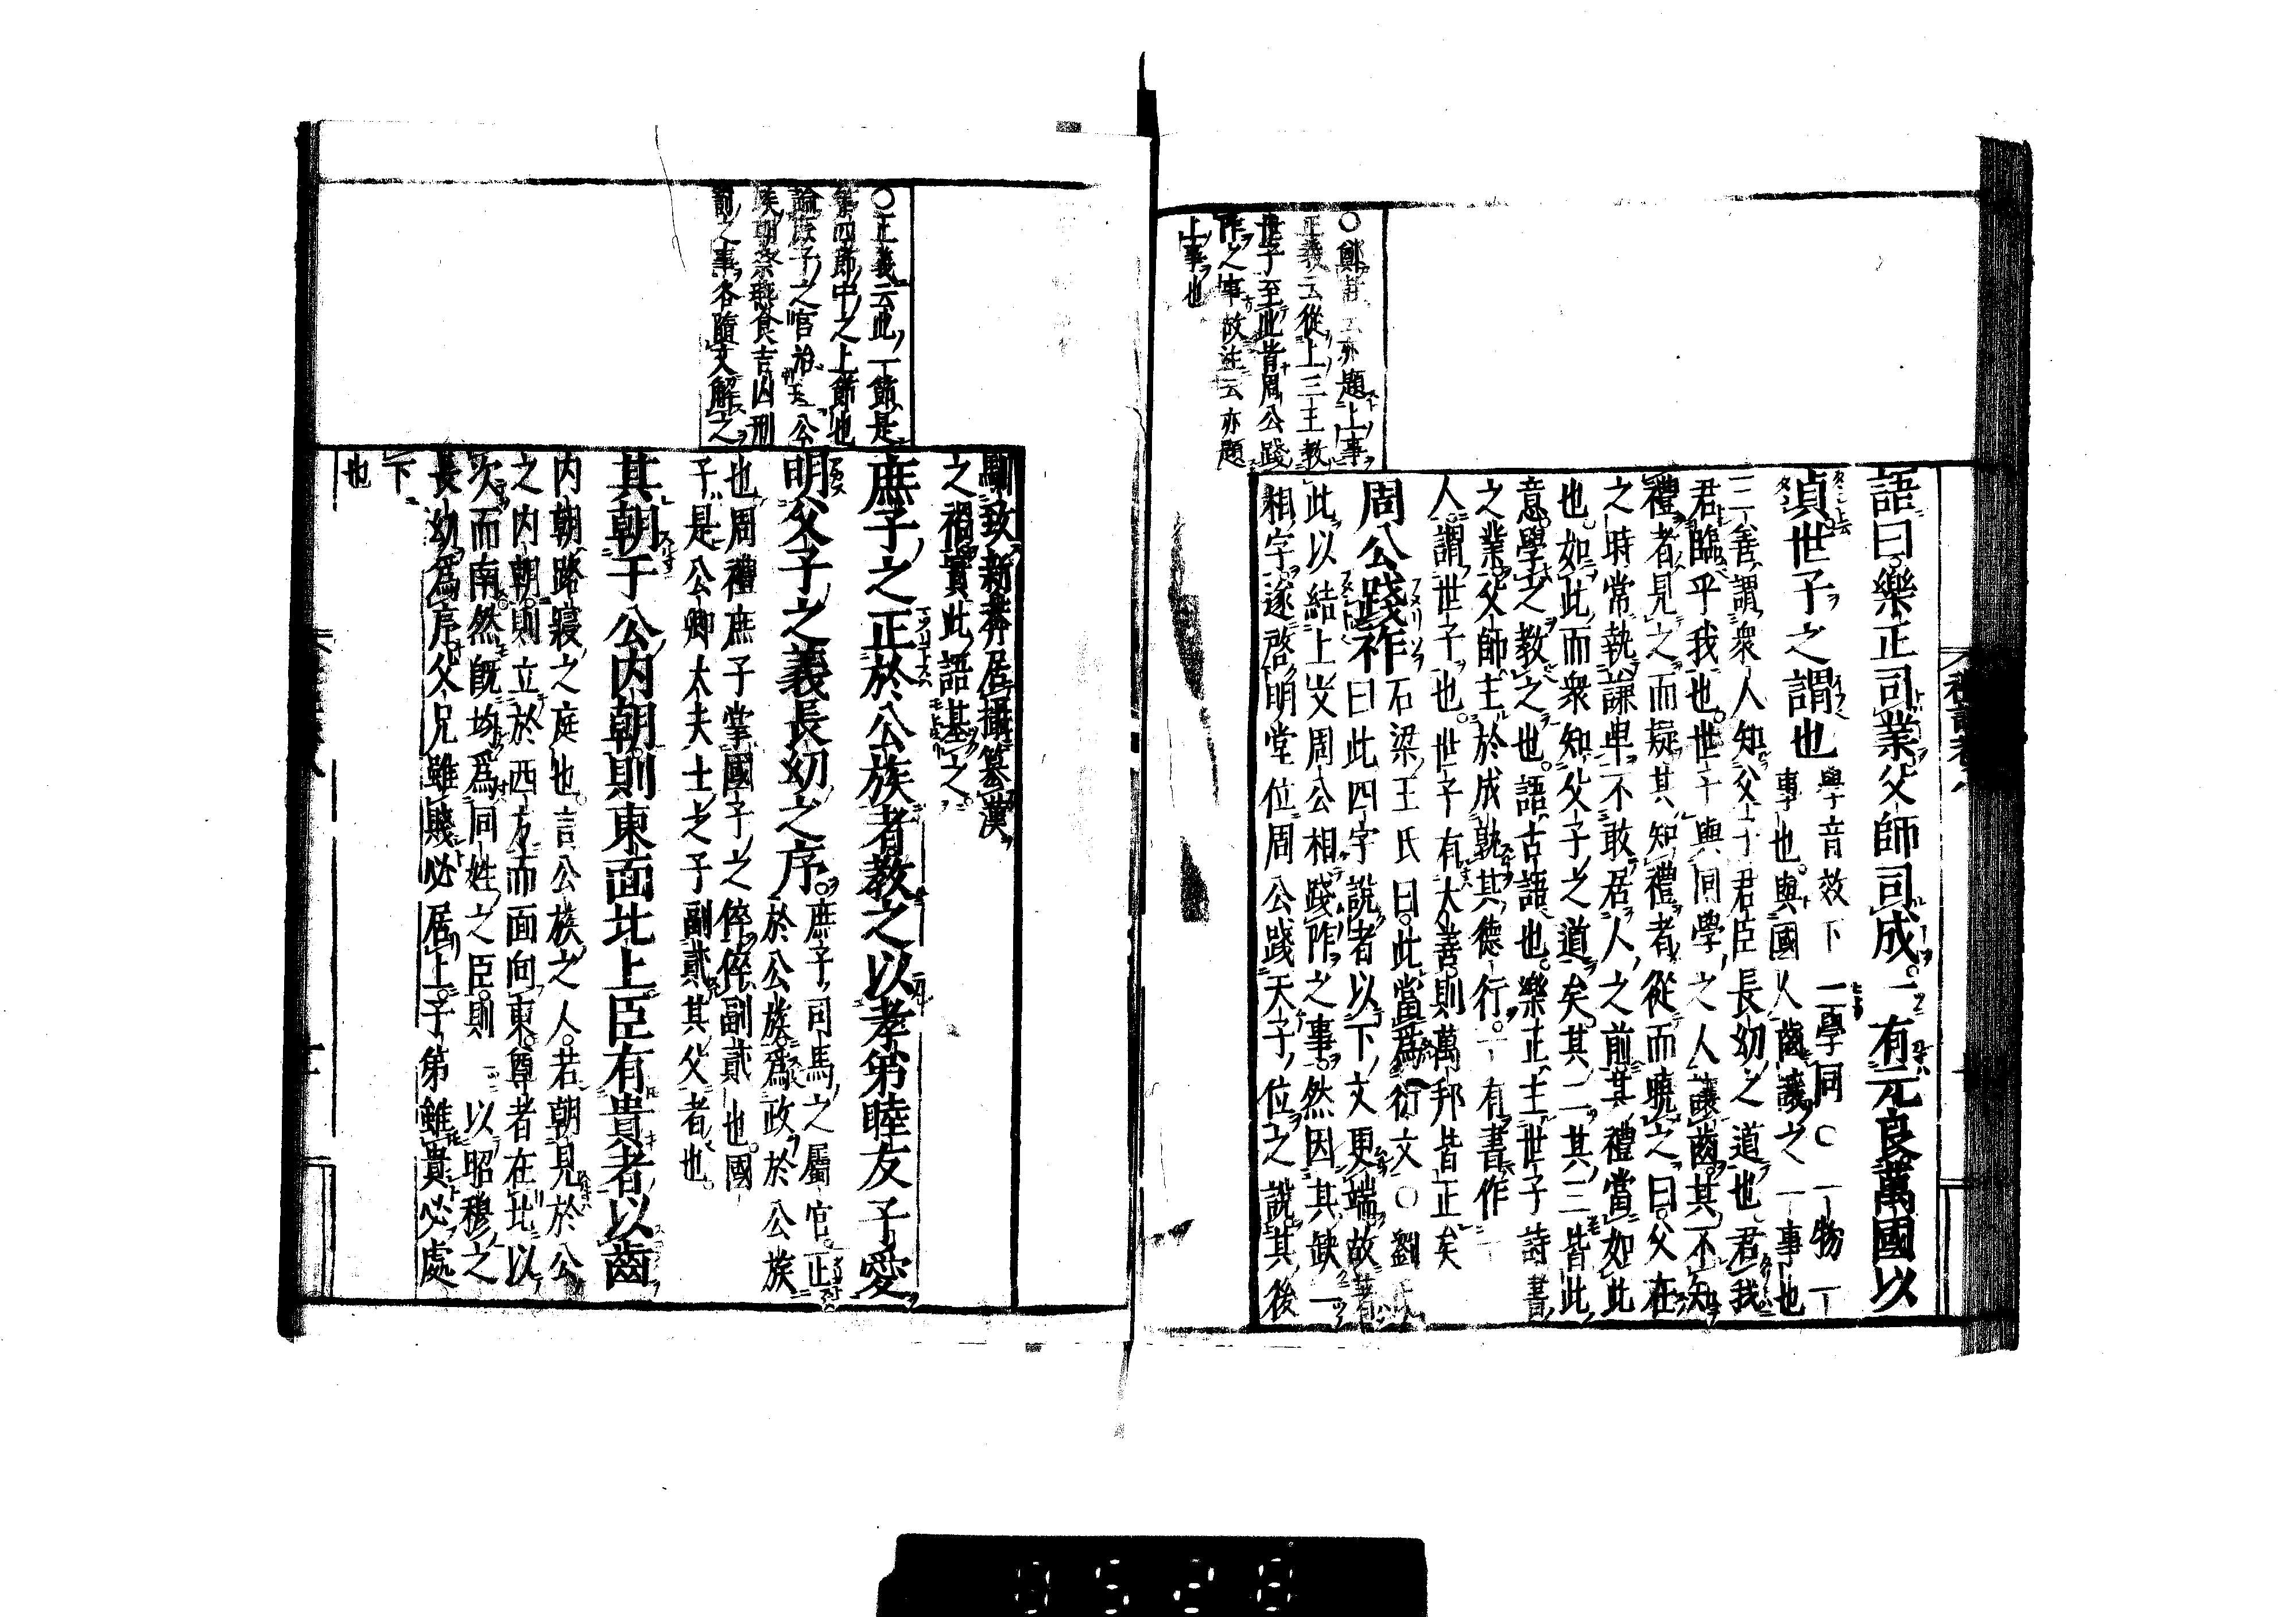 語曰樂正司業父師司成一有元良萬國以
貞世子之謂也
學音效下二學同〇一物一
事也與國人齒讓之一事也
三善謂衆人知父子君臣長幼之道也君我
君臨乎我也世子與同學之人讓齒其不知
禮者見之而疑其知禮者從而曉之曰父在
之時常執謙卑不敢居人之前其禮當如此
也如此而衆知父子之道矣其二其三皆此
意學之教之也語古語也樂正主世子詩書
之業父師主於成就其德行一有書作一
人謂世子也世子有大善則萬邦皆正矣
周公踐祚
石梁王氏曰此當爲衍文〇劉氏
曰此四字說者以下文更端故著
此以結上文周公相踐阼之事然因其缺一
相字遂啓明堂位周公踐天子位之說其後
〇鄭註云亦題上事
正義云從上三王教
世子至此皆周公踐
阼之事故注云亦題
上事也
馴致新莽居攝簒漢
之禍實此語基之
庶子之正於公族者教之以孝弟睦友子愛
明父子之義長幼之序
庶子司馬之屬官正
於公族爲政於公族
也周禮庶子掌國子之倅倅副貳也國
子是公卿大夫士之子副貳其父者也
其朝于公内朝則東面北上臣有貴者以齒
内朝路寢之庭也言公族之人若朝見於公
之内朝則立於西方而面向東尊者在北以
次而南然既均爲同姓之臣則一以昭穆之
長幼爲序父兄雖賤必居上子弟雖貴必處
下
也
〇正義云此一節是
第四節中之上節也
論庶子之官治公
族朝祭燕食吉凶刑
罰之事各隨文解之
0528